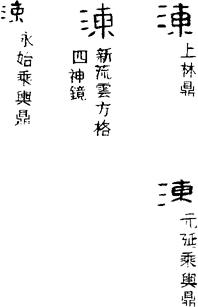 涷
上林鼎
涷
元延乘輿鼎
涷
新流雲方格
四神鏡
涷
永始乘輿鼎